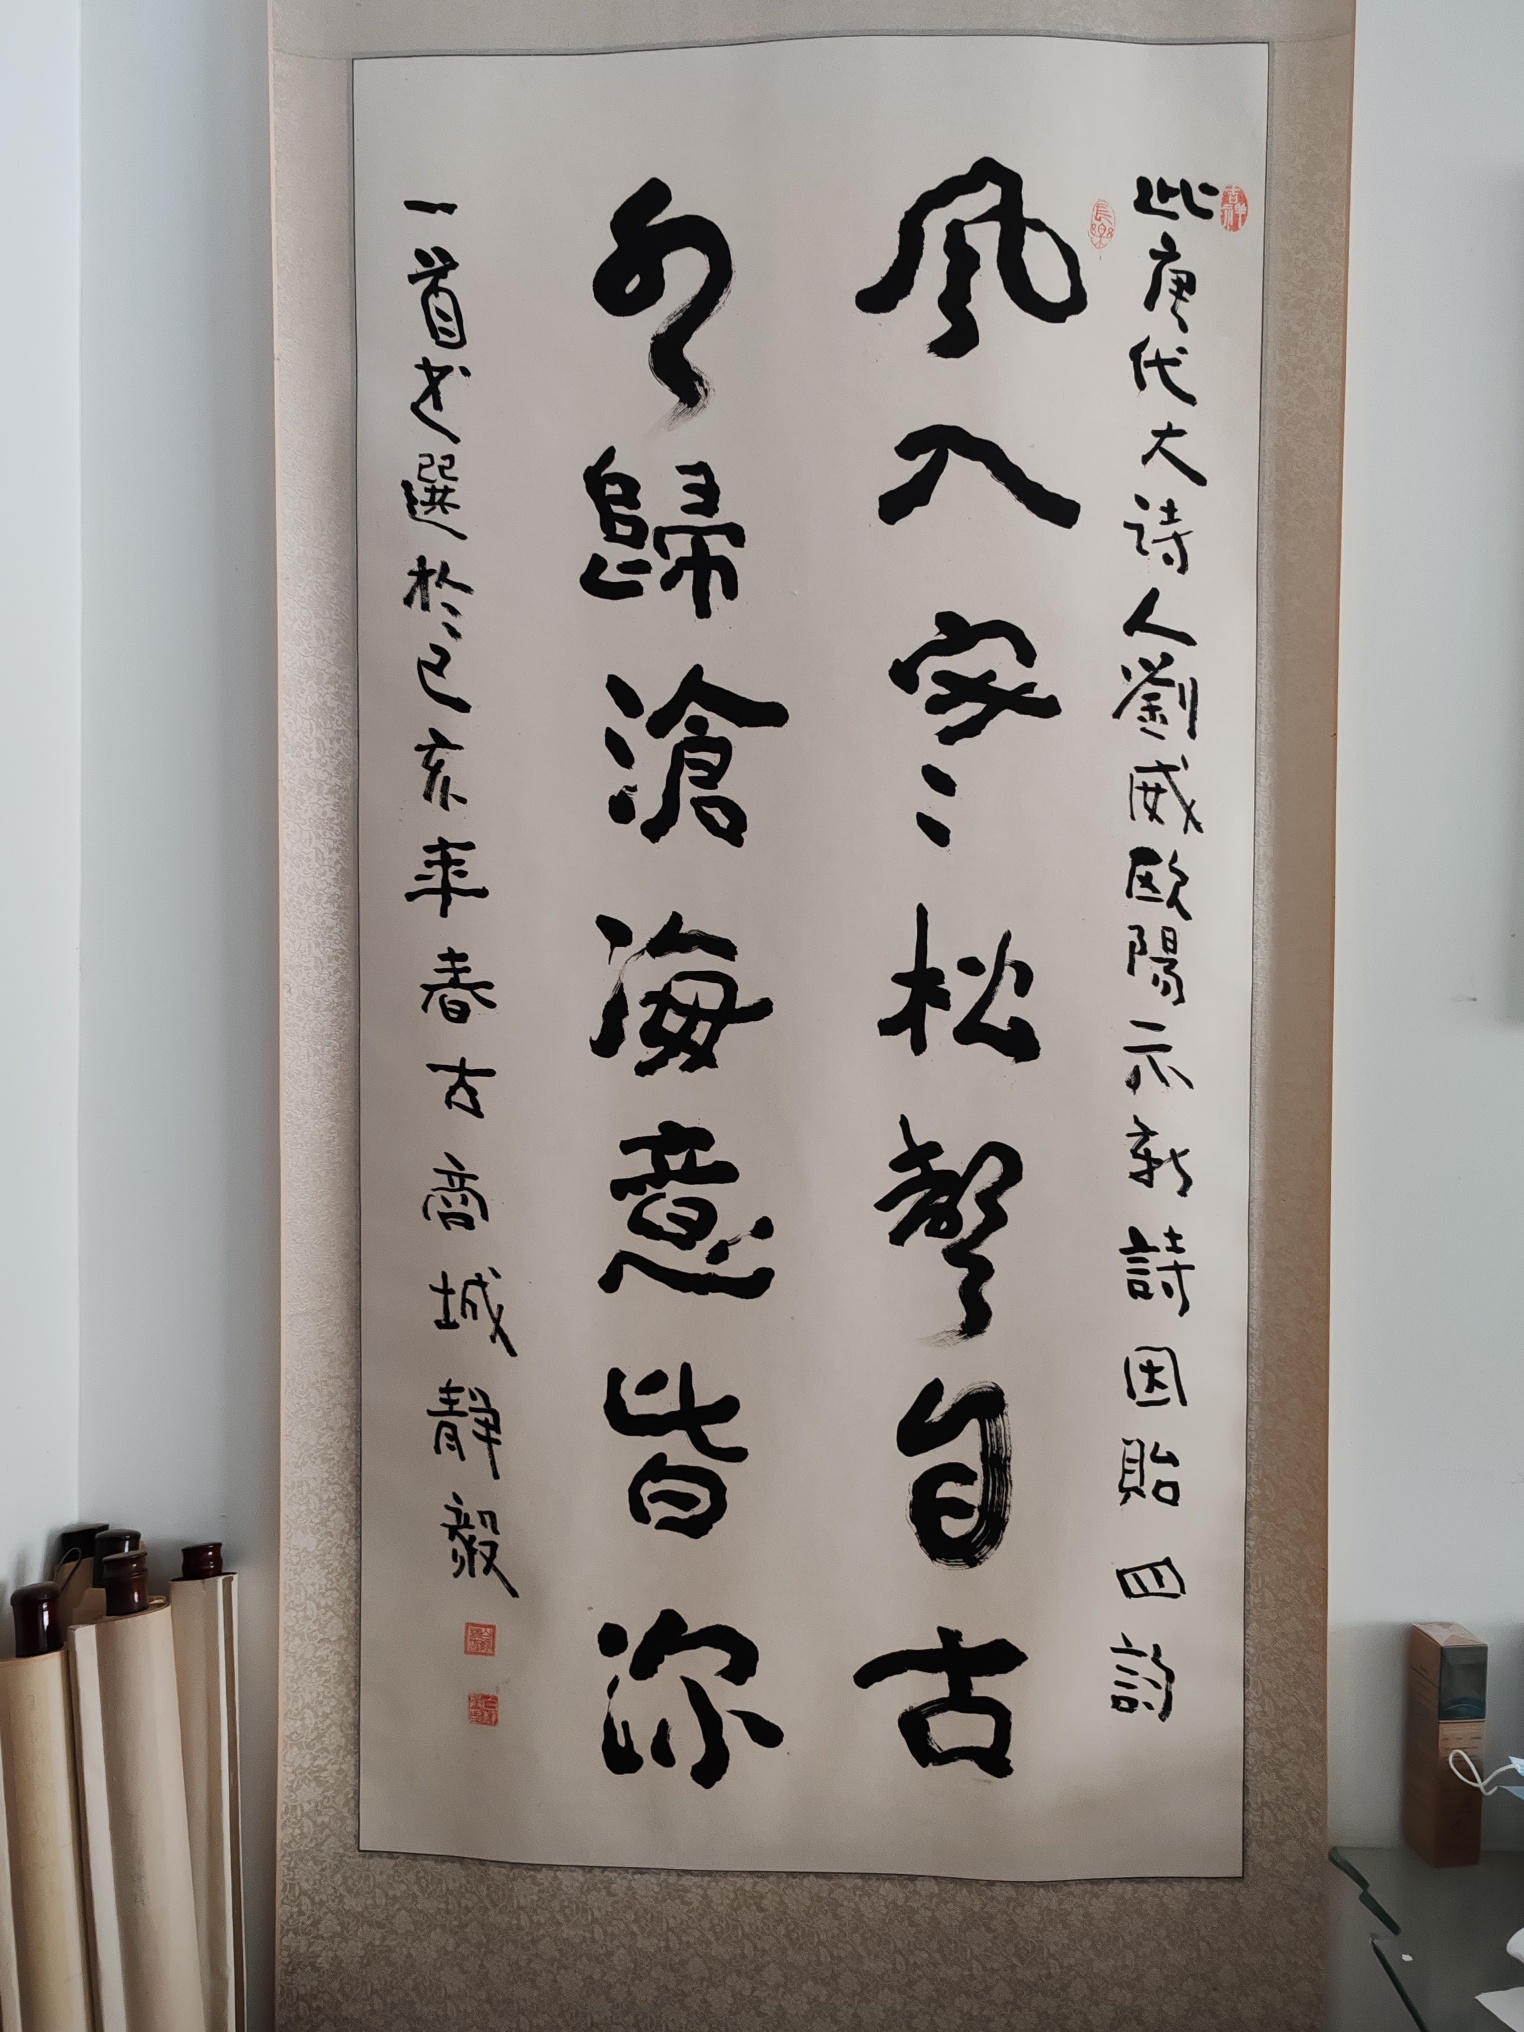 此唐代大诗人劉威欧陽示新詩因貽四韵
風入寥〻松聲自古
水歸滄海意皆深
一首也選於己亥年春古商城靜毅